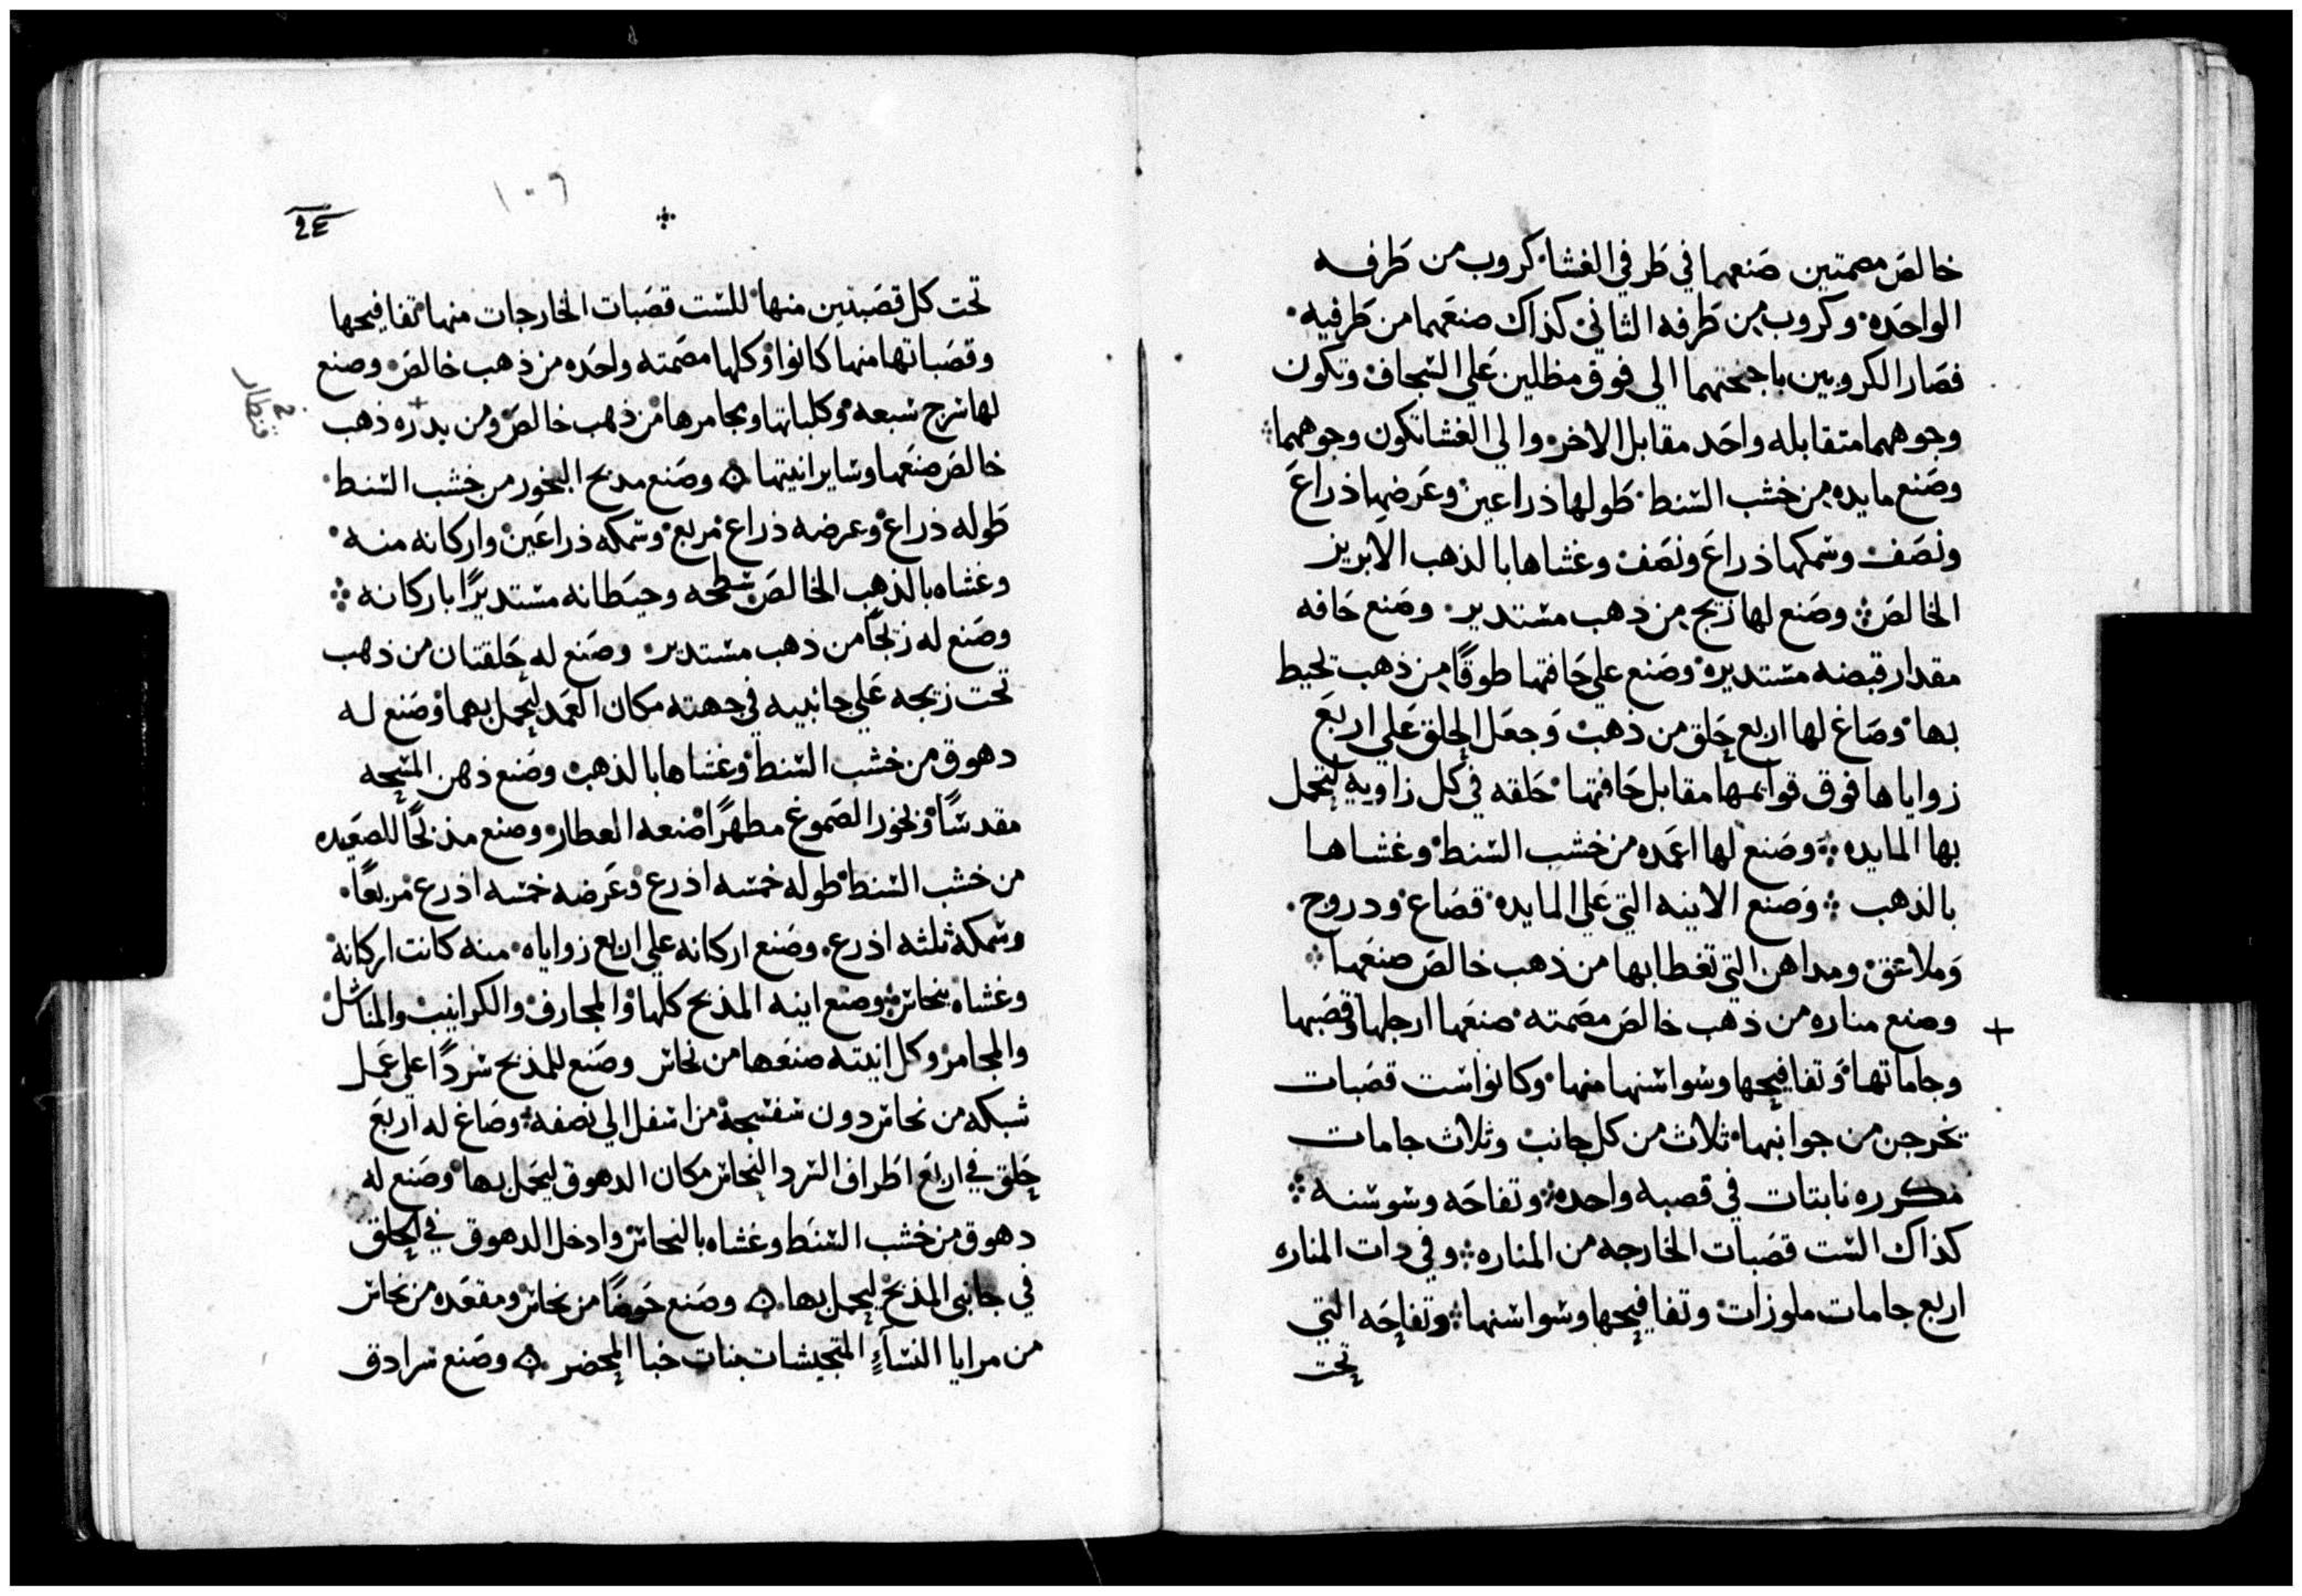 خالص مصمتين صنعهما في طرفي الغشا كروب من طرفه
الواحده وكروب من طرفه الثاني كذاك صنعهما من طرفيه
فصار الكروبين باجنحتهما الي فوق مظللين علي السجاف وتكون
وجوههما متقابله واحد مقابل الاخر والي الغشا تكون وجوههما
وصنع مايده من خشب السنط طولها ذراعين وعرضها ذراع
ونصف وسمكها ذراع ونصف وغشاها بالذهب الابريز
الخالص وصنع لها زيج من ذهب مستدير وصنع حافه
مقدار قبضه مستديره وصنع علي حافتها طوقًا من ذهب تحيط
بها وصاغ لها اربع حلق من ذهب وجعل الحلق علي اربع
زواياها فوق قوايمها مقابل حافتها حلقه في كل زاويه لتحمل
بها المايده وصنع لها اعمده من خشب السنط وغشاها
بالذهب وصنع الانيه التي علي المايده قصاع ودروج
وملاعق ومداهن التي تغطا بها من ذهب خالص صنعها
+ وصنع مناره من ذهب خالص مصمته صنعها ارجلها وقصبها
وجاماتها وتفافيحها وسواسنها منها وكانوا ست قصبات
تخرجن من جوانبها ثلاث من كل جانب وثلاث جامات
مكرره نابتات في قصبه واحده وتفاحه وسوسنه
كذاك الست قصبات الخارجه من المناره وفي دات المناره
اربع جامات ملوزات وتفافيحها وسواسنها وتفاحه التي
تحت
١٠٦
24
تحت كل قصبتين منها للست قصبات الخارجات منها تفافيحها
وقصباتها منها كانوا وكلها مصمته واحده من ذهب خالص وصنع
لها سرج سبعه وكلباتها ومجامرها من ذهب خالص ومن بدره ذهب
قنطار
خالص صنعها وساير انيتها وصنع مدبح البخور من خشب السنط
طوله ذراع وعرضه ذراع مربع وسمكه ذراعين واركانه منه
وغشاه بالذهب الخالص سطحه وحيطانه مستديرًا باركانه
وصنع له زيجًا من ذهب مستدير وصنع له حلقتان من ذهب
تحت زيجه علي جانبيه في جهته مكان العمد ليحمل بهما وصنع له
دهوق من خشب السنط وغشاها بالذهب وصنع ذهن المسحه
مقدسًا وبخور الصموغ مطهرًا صنعه العطار وصنع مذبحًا للصعيده
من خشب السنط طوله خمسه اذرع وعرضه خمسه اذرع مربعًا
وسمكه ثلثه اذرع وصنع اركانه علي اربع زواياه منه كانت اركانه
وغشاه بنحاس وصنع انيه المذبح كلها والمجارف والكرانيب والمناشل
والمجامر وكل انيته صنعها من نحاس وصنع للمذبح سردًا علي عمل
شبكه من نحاس دون سفسجه من اسفل الي نصفه وصاغ له اربع
حلق في اربع اطراف السرد النحاس مكان الدهوق ليحمل بها وصنع له
دهوق من خشب السنط وغشاه بالنحاس وادخل الدهوق في الحلق
في جانبي المذبح ليحمل بها وصنع حوضًا من نحاس ومقعده من نحاس
من مرايا النسآء المتجيشات بنات خبا المحضر وصنع سرادق